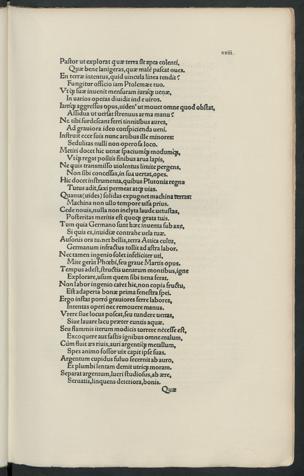 xxiii.
Pastor ut explorat quæ terra sit apta colenti,
Quæ bene lanigeras, quæ malè pascat oues.
En terræ intentus, quid uincula linea tendit?
Fungitur officio iam Ptolemæe tuo.
Vtque suæ inuenit mensuram iurisque uenæ,
In uarios operas diuidit inde uiros.
Iamque aggressus opus, uiden' ut mouet omne quod obstat,
Assidua ut uersat strenuus arma manu?
Ne tibi surdescant ferri tinnitibus aures,
Ad grauiora ideo conspicienda ueni.
Instruit ecce suis nunc artibus ille minores:
Sedulitas nulli non operosa loco.
Metiri docet hic uenæ spaciumque modumque,
Vtque regat positis finibus arua lapis,
Ne quis transmisso uiolentus limite pergens,
Non sibi concessas, in sua uertat, opes.
Hic docet instrumenta, quibus Plutonia regna
Tutus adit, saxi permeat atque uias.
Quanta (uides) solidas expugnet machina terras:
Machina non ullo tempore uisa prius.
Cede nouis, nulla non inclyta laude uetustas,
Posteritas meritis est quoque grata tuis.
Tum quia Germano sunt hæc inuenta sub axe,
Si quis es, inuidiæ contrahe uela tuæ.
Ausonis ora tumet bellis, terra Attica cultu,
Germanum infractus tollit ad astra labor.
Nec tamen ingenio solet infeliciter uti,
Mite gerát Phœbi, seu graue Martis opus.
Tempus adest, structis uenarum montibus, igne
Explorare, usum quem sibi uena ferat.
Non labor ingenio caret hic, non copia fructu,
Est adaperta bonæ prima fenestra spei.
Ergo instat porrò grauiores ferre labores,
Intentas operi nec remouere manus.
Vrere siue locus poscat, seu tundere uenas,
Siue lauare lacu præter euntis aquæ.
Seu flammis iterum modicis torrere necesse est,
Excoquere aut fastis ignibus omne malum,
Cùm fluit æs riuis, auri argentique metallum,
Spes animo fossor uix capit ipse suas.
Argentum cupidus fuluo secernit ab auro,
Et plumbi lentam demit utrique moram.
Separat argentum, lucri studiosus, ab ære,
Seruatis, linquens deteriora, bonis.
Quæ